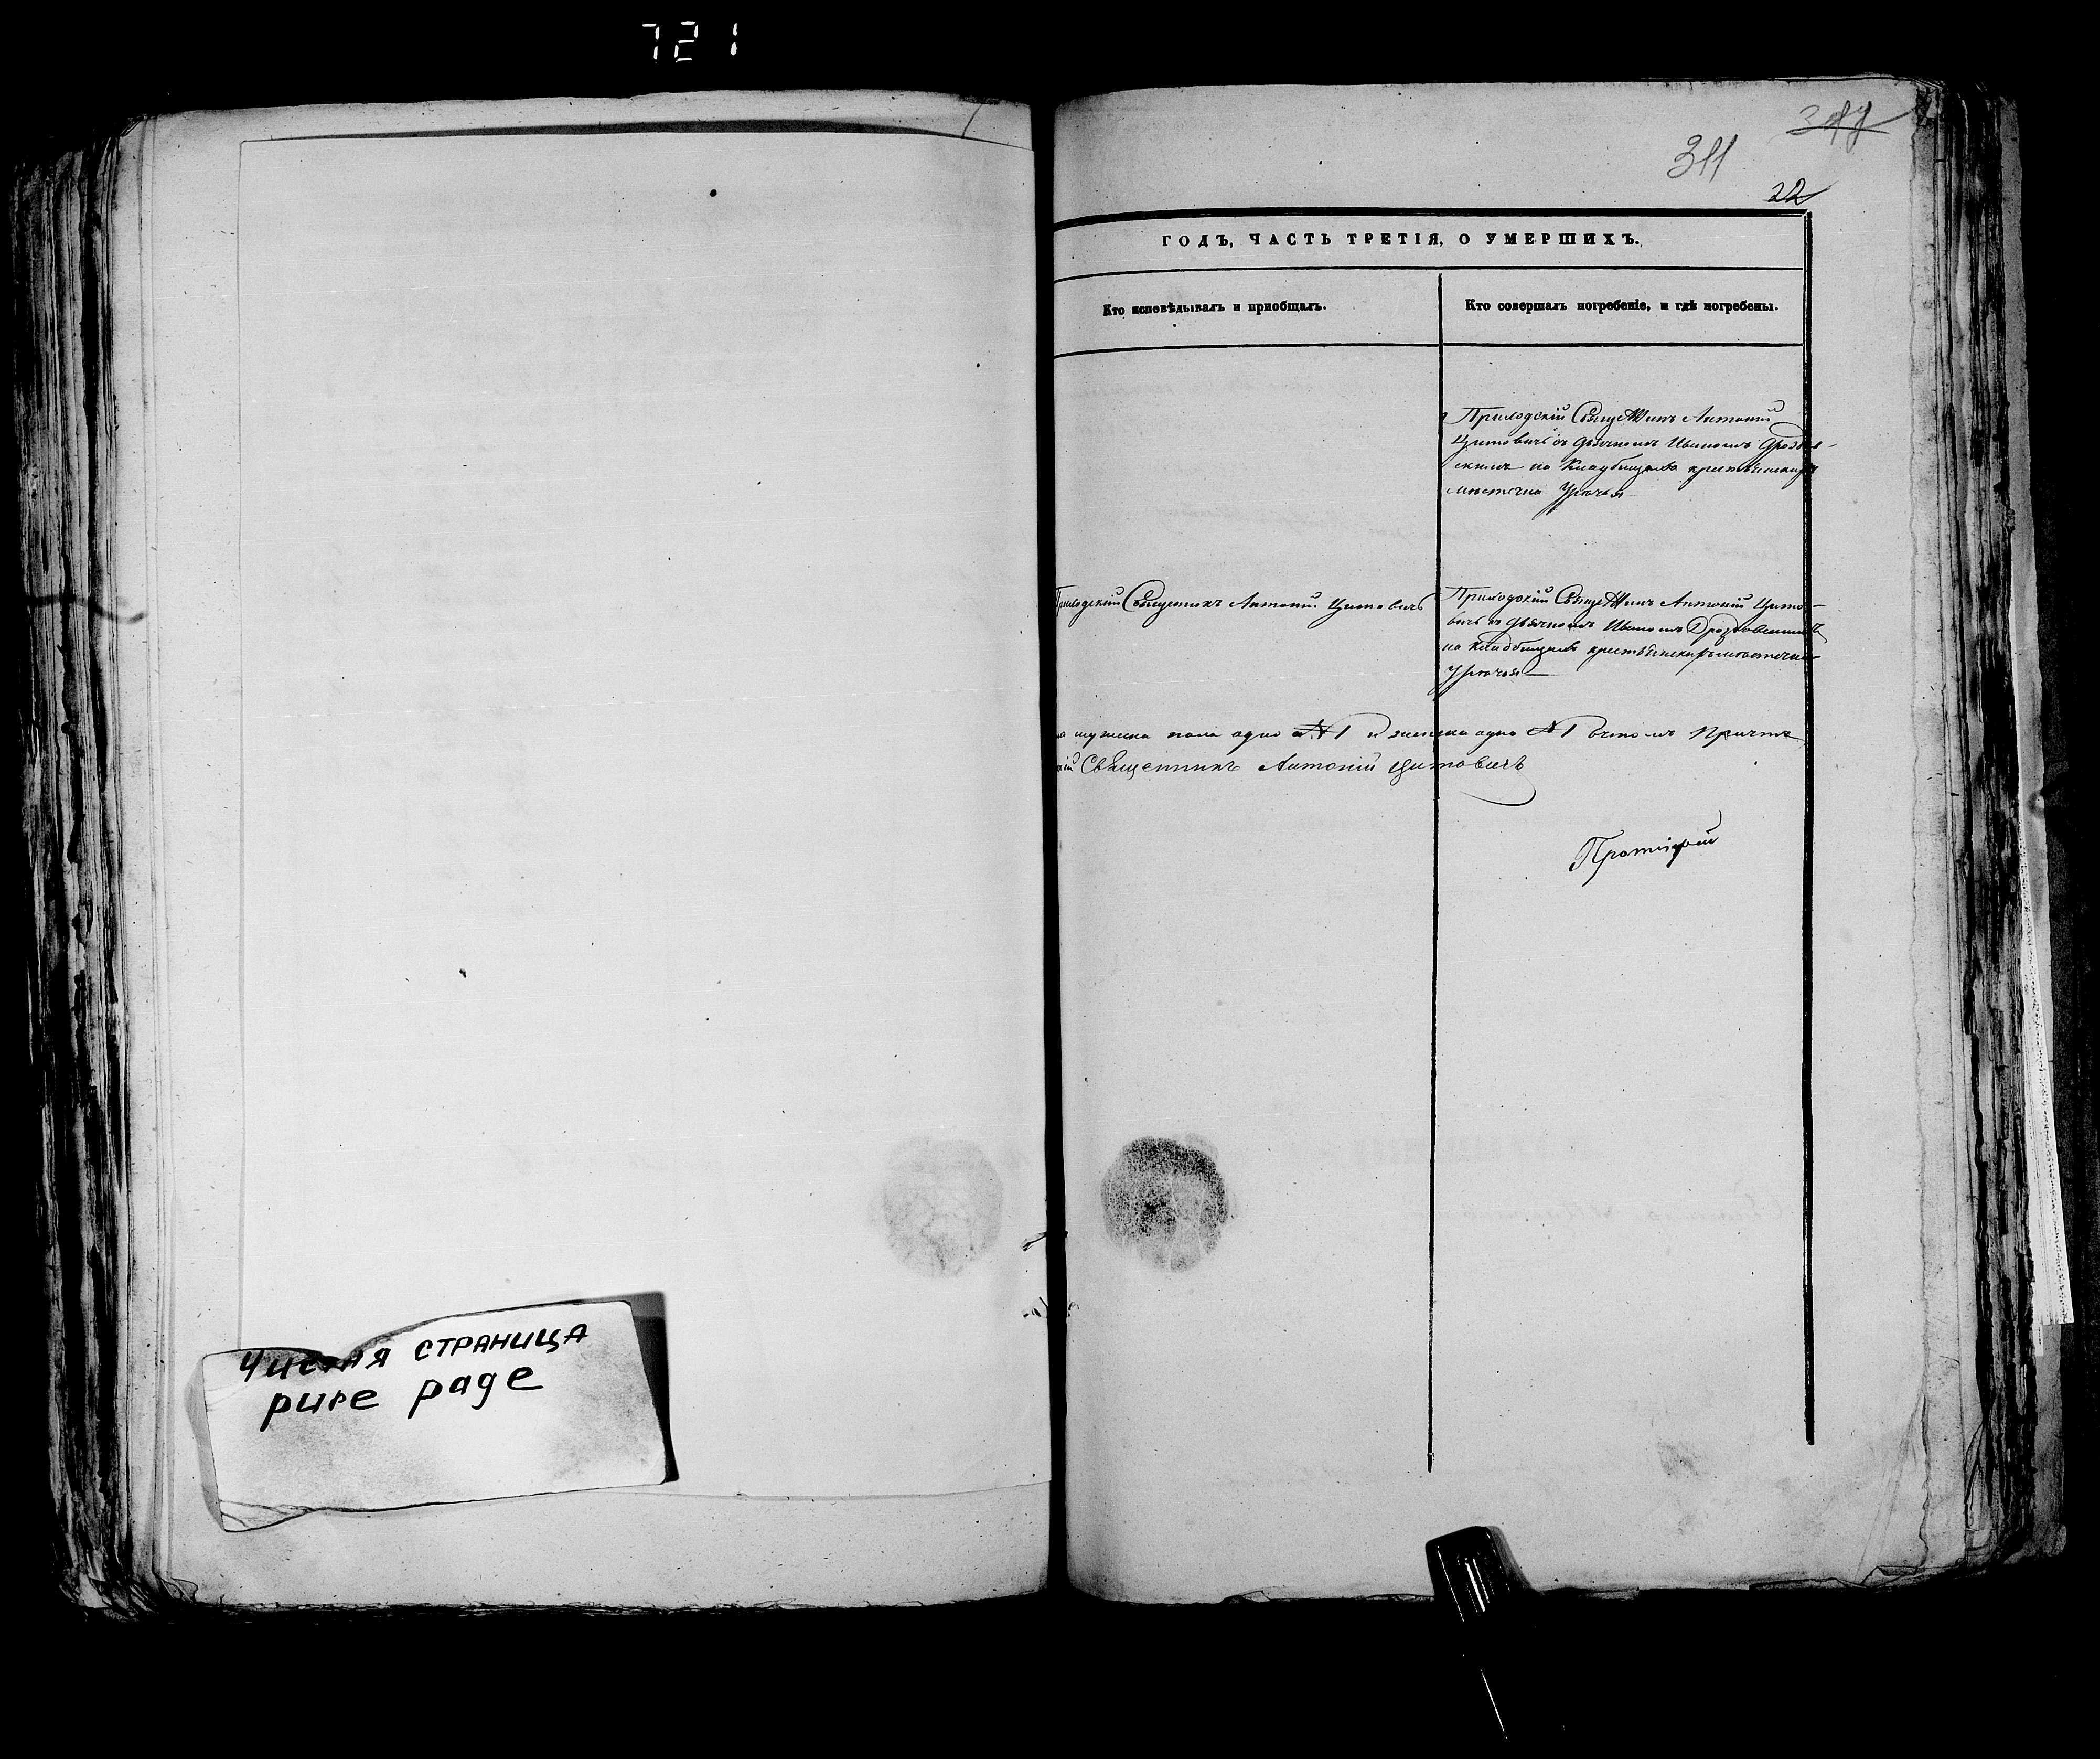 721
311
22
ГОДЪ, ЧАСТЬ ТРЕТІЯ, О УМЕРШИХЪ.
Кто исповѣдывалъ и пріобщалъ.
Кто совершалъ погребеніе, и гдѣ погребены.
Приходскій Священникъ Антоній
Цитовичъ съ дьячкомъ Иваномъ
на Кладбищѣ крестьянскомъ
мѣстечка Уречья
Приходскій Священникъ Антоній Цитовичъ
Приходскій Священникъ Антоній Цито-
вичъ съ дьячкомъ Иваномъ
на кладбищѣ крестьянскомъ мѣстечка
Уречья
мужеска пола одно №1 и женска одно №1 въ томъ Причтъ
Священникъ Антоній Цитовичъ
Чистая страница
pure page